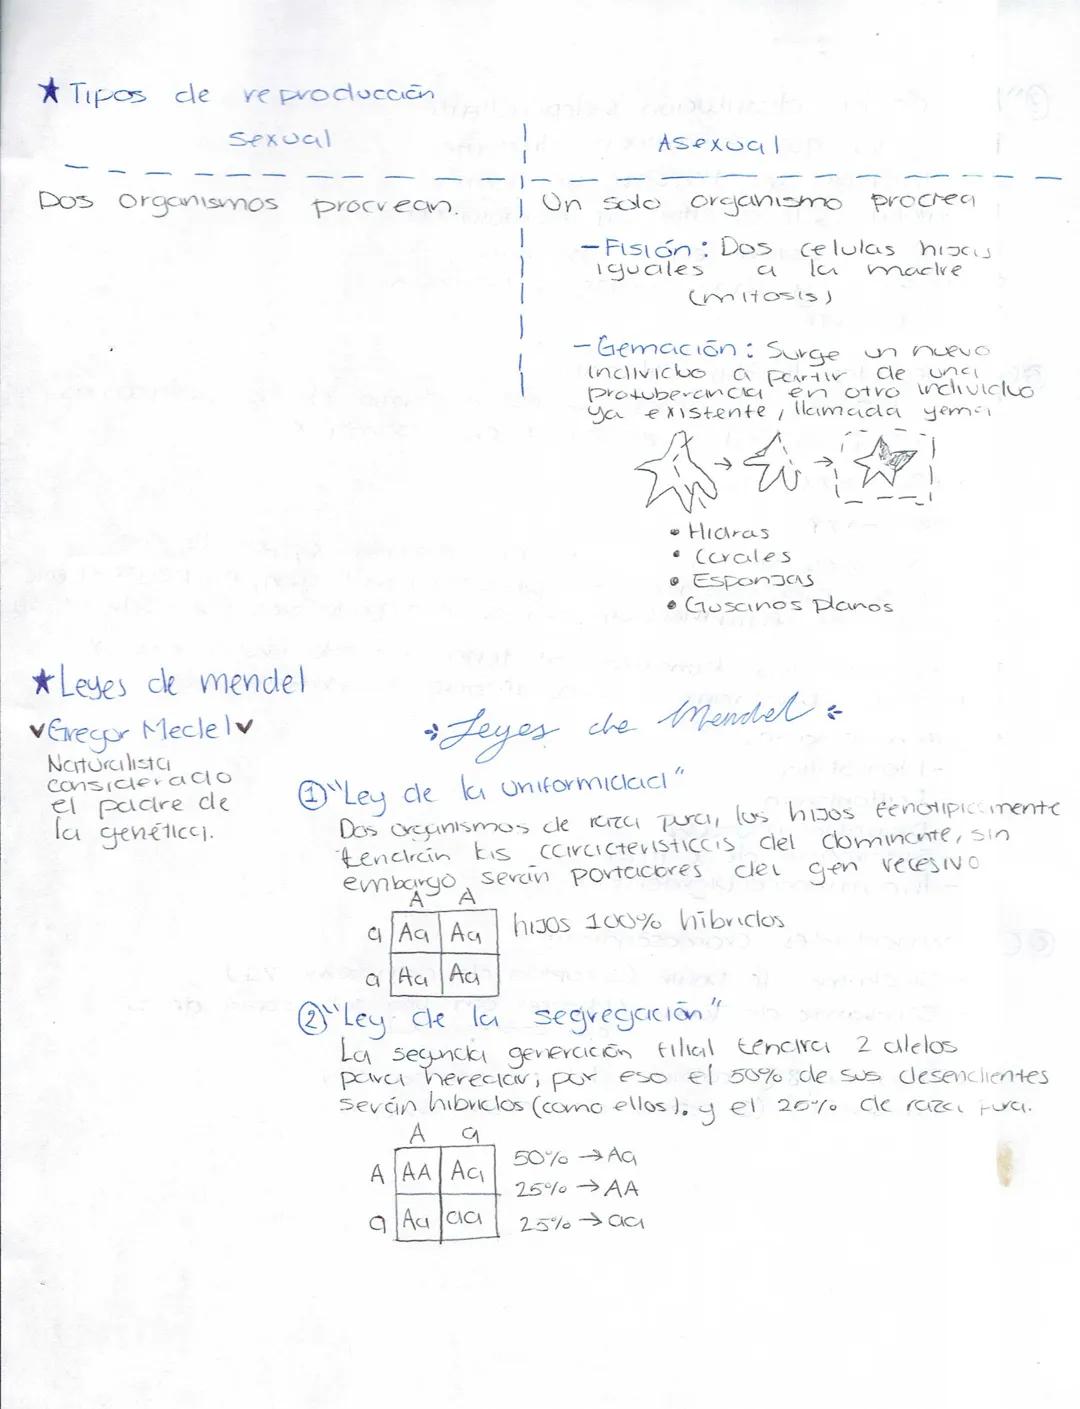 ★ Tipos de reproducción
Sexual
Asexual
Dos organismos procrean.
Un solo organismo procrea
- Fisión: Dos celulas hijas
iguales a la madre
(mitosis)
- Gemación: Surge un nuevo
individuo a partir de una
protuberancia en otro individuo
ya existente, llamada yema
• Hidras
• Corales
• Esponjas
• Gusanos planos
★ Leyes de mendel
Gregor Medel
Naturalista
considerado
el padre de
la genética.
Leyes de Mendel
① "Ley de la uniformidad"
Dos organismos de raza pura, los hijos fenotipicamente
tendrán las características del dominante, sin
embargo, serán portadores del gen recesivo
A A
a Aa Aa hijos 100% híbridos
a Aa Aa
② "Ley de la segregación"
La segunda generación filial tendra 2 alelos
para heredar; por eso el 50% de sus desendientes
serán hibridos (como ellos). y el 25% de raza pura.
A a
A AA Aa
a Aa aa
50% → Aa
25% → AA
25% → aa